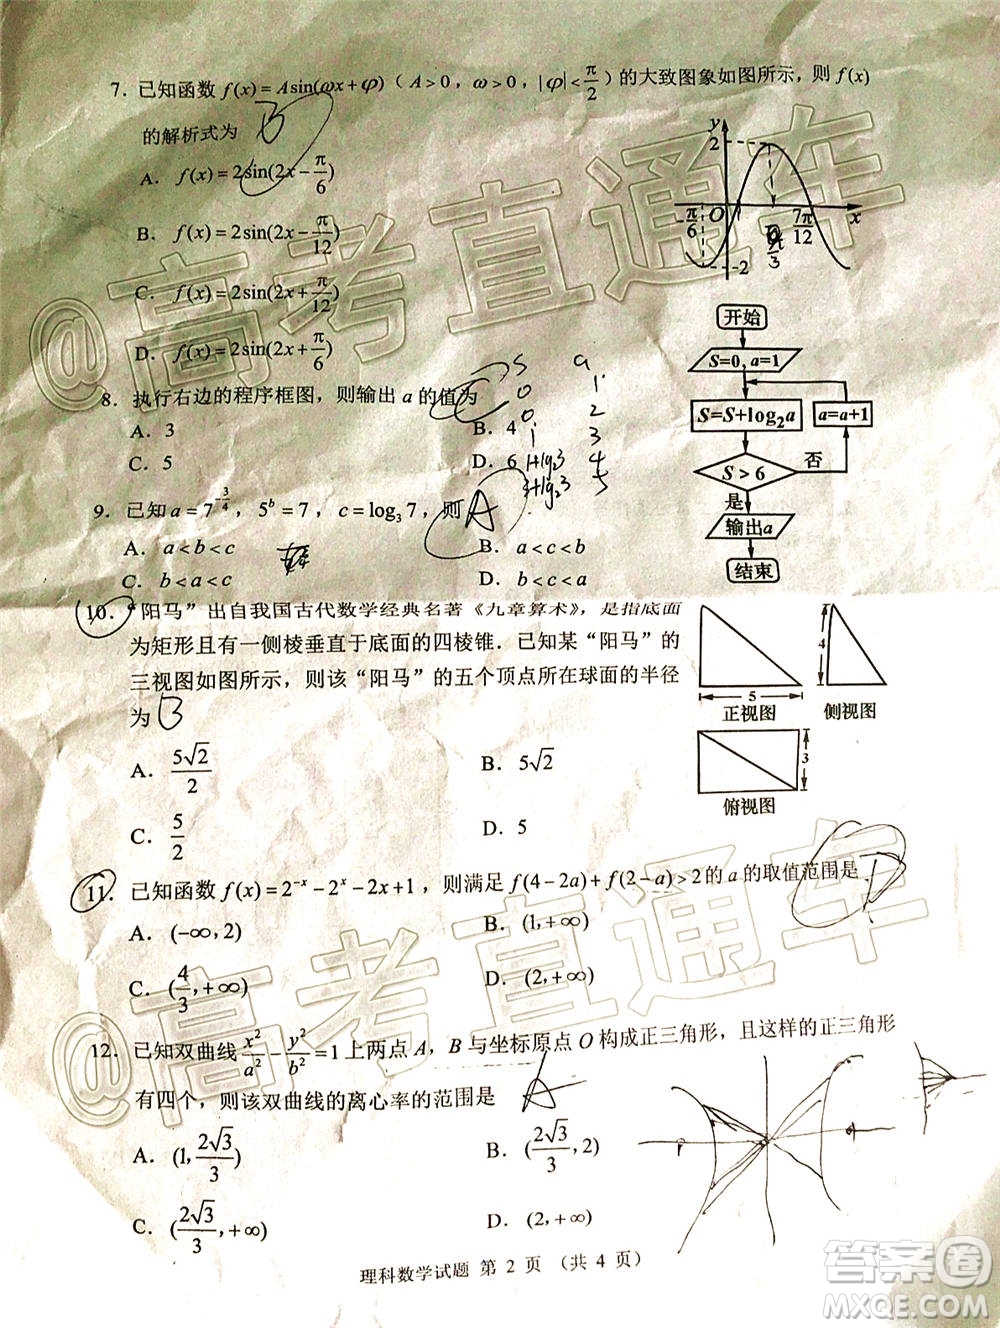 7．已知函数 f(x)=Asin(ωx+φ)（A>0，ω>0，|φ|<π/2）的大致图象如图所示，则 f(x)
的解析式为 B
A．f(x)=2sin(2x-π/6)
B．f(x)=2sin(2x-π/12)
C．f(x)=2sin(2x+π/12)
D．f(x)=2sin(2x+π/6)
y
2
-π/6
O
7π/12
x
π/3
-2
8．执行右边的程序框图，则输出 a 的值为 C
A．3
B．4
C．5
D．6
S a
0 1
0 2
1 3
1+lg₂3 4
3+lg₂3 5
开始
S=0, a=1
S=S+log₂a
a=a+1
S>6
否
是
输出a
结束
9．已知 a=7^(-3/4)，5^b=7，c=log₃7，则 A
A．a<b<c
B．a<c<b
C．b<a<c
D．c<b<a
10．“阳马”出自我国古代数学经典名著《九章算术》，是指底面
为矩形且有一侧棱垂直于底面的四棱锥．已知某“阳马”的
三视图如图所示，则该“阳马”的五个顶点所在球面的半径
为 B
A．5√2/2
B．5√2
C．5/2
D．5
5
正视图
4
侧视图
3
俯视图
11．已知函数 f(x)=2^(-x)-2^x-2x+1，则满足 f(4-2a)+f(2-a)>2 的 a 的取值范围是 D
A．(-∞, 2)
B．(1, +∞)
C．(4/3, +∞)
D．(2, +∞)
12．已知双曲线 x²/a²-y²/b²=1 上两点 A，B 与坐标原点 O 构成正三角形，且这样的正三角形
有四个，则该双曲线的离心率的范围是 A
A．(1, 2√3/3)
B．(2√3/3, 2)
C．(2√3/3, +∞)
D．(2, +∞)
理科数学试题 第 2 页 （共 4 页）
@高考直通车
@高考直通车
答案圈
MXQE.COM